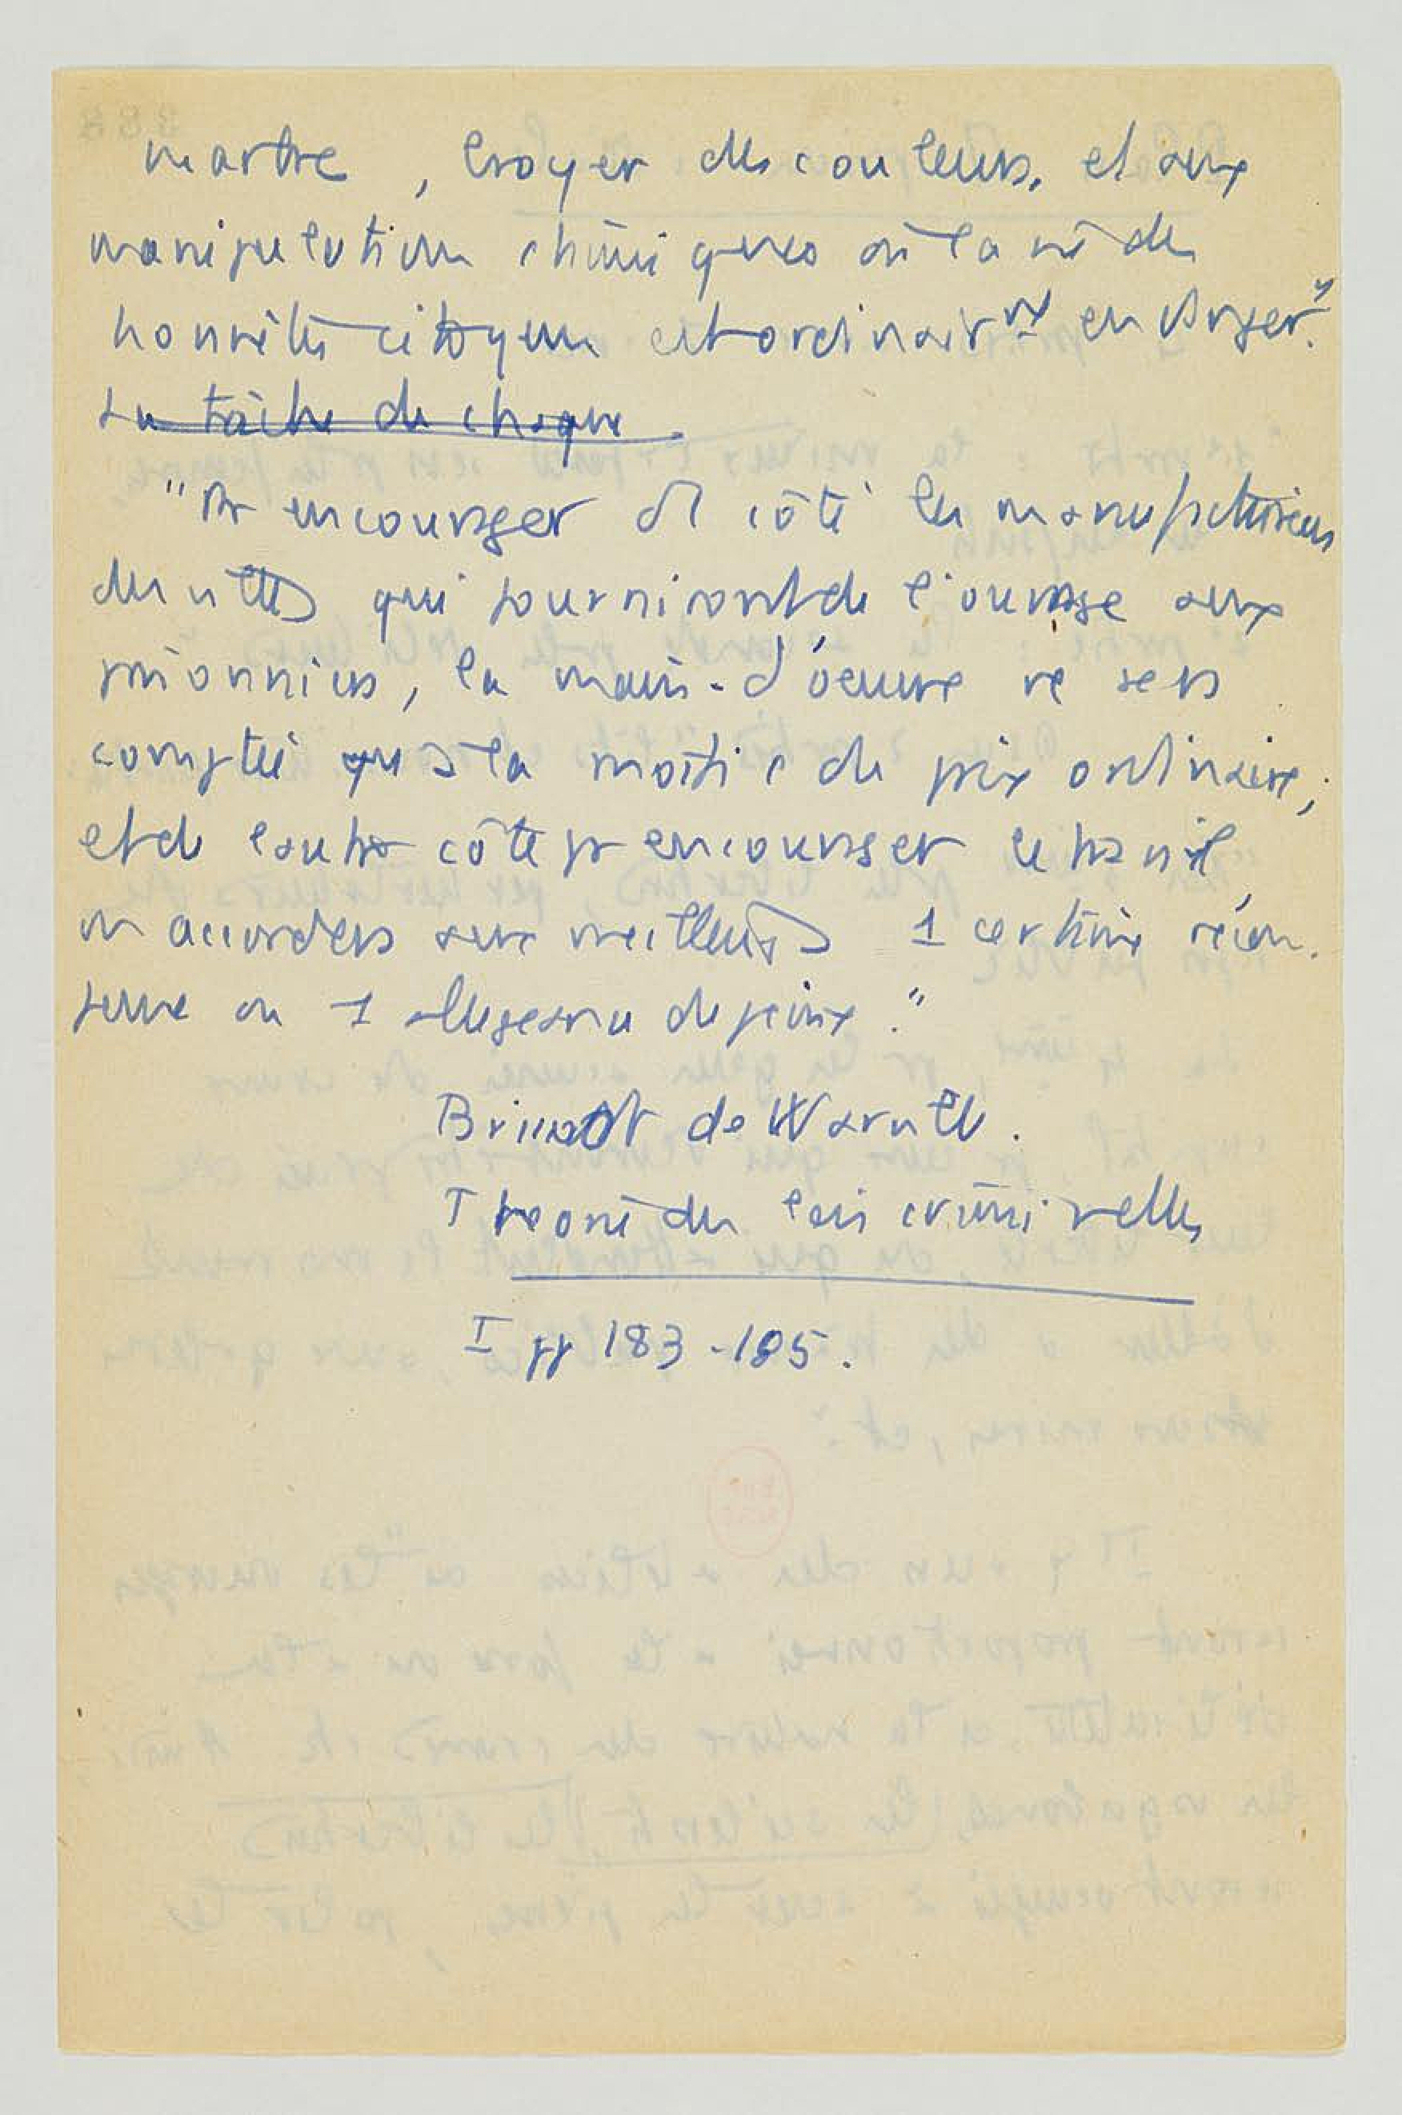 marbre, broyer des couleurs, et aux
manipulations chimiques où la vie des
honnêtes citoyens est ordinairt en danger."
La tâche de chaque
"Pr encourager d'1 côté les manufacturiers
des villes qui fourniront de l'ouvrage aux
prisonniers, la main-d'oeuvre ne sera
comptée qu'à la moitié du prix ordinaire;
et de l'autre côté pr encourager le travail,
on accordera aux meilleurs 1 certaine récom-
pense ou 1 allégeance de peine."
Brissot de Warville.
Théorie des lois criminelles
I pp 183-185.